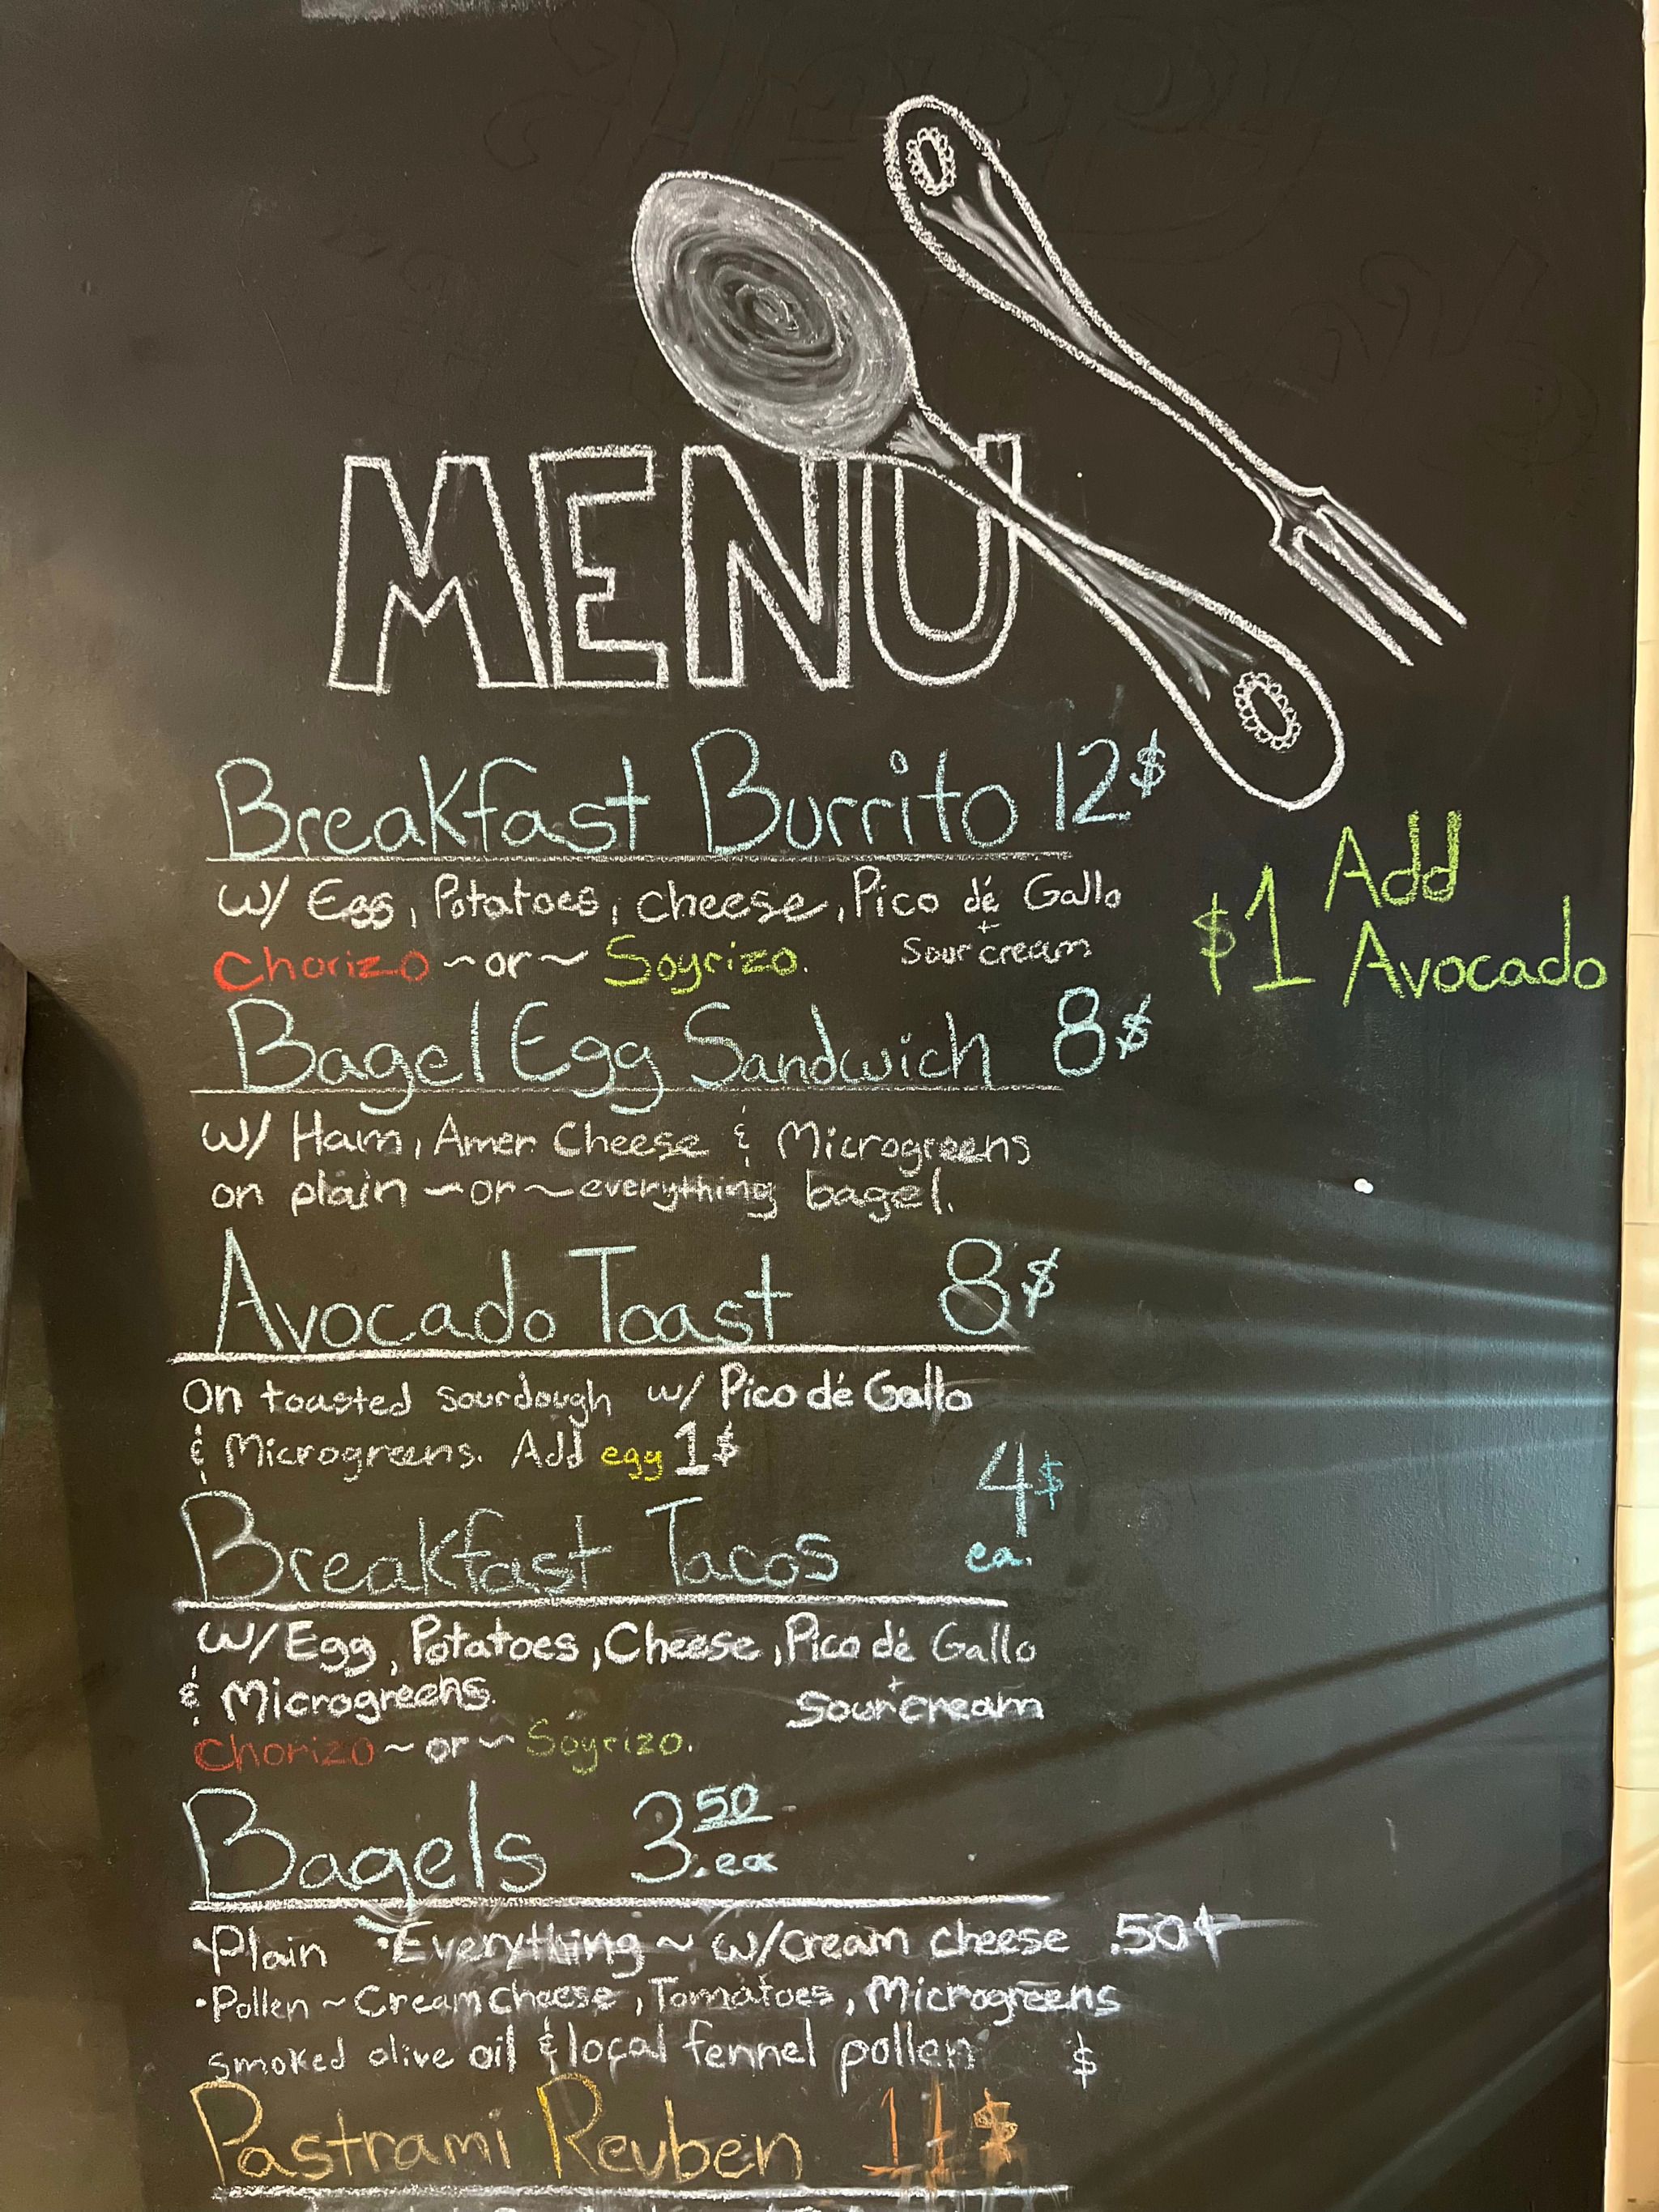 MENU
Breakfast Burrito 12$
w/ Egg, Potatoes, cheese, Pico dé Gallo
+ Sour cream
Chorizo ~or~ Soyrizo.
$1 Add Avocado
Bagel Egg Sandwich 8$
w/ Ham, Amer. Cheese & Microgreens
on plain ~or~ everything bagel.
Avocado Toast 8$
On toasted sourdough w/ Pico dé Gallo
& Microgreens. Add egg 1$
Breakfast Tacos 4$ ea.
w/ Egg, Potatoes, Cheese, Pico dé Gallo
& Microgreens. + Sour cream
Chorizo ~or~ Soyrizo.
Bagels 3.50 ea
•Plain •Everything ~ w/cream cheese .50¢
•Pollen ~ Cream cheese, Tomatoes, Microgreens
smoked olive oil & local fennel pollen $
Pastrami Reuben 11$